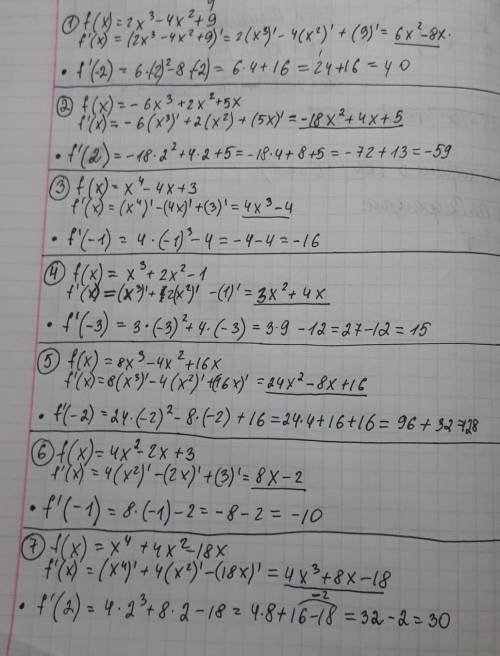 ① f(x) = 2x³ - 4x² + 9
f'(x) = (2x³ - 4x² + 9)' = 2(x³)' - 4(x²)' + (9)' = 6x² - 8x.
• f'(-2) = 6·(-2)² - 8·(-2) = 6·4 + 16 = 24 + 16 = 40
② f(x) = - 6x³ + 2x² + 5x
f'(x) = - 6(x³)' + 2(x²) + (5x)' = -18x² + 4x + 5
• f'(2) = -18·2² + 4·2 + 5 = -18·4 + 8 + 5 = -72 + 13 = -59
③ f(x) = x⁴ - 4x + 3
f'(x) = (x⁴)' - (4x)' + (3)' = 4x³ - 4
• f'(-1) = 4·(-1)³ - 4 = -4 - 4 = -16
④ f(x) = x³ + 2x² - 1
f'(x) = (x³)' + 2(x²)' - (1)' = 3x² + 4x
• f'(-3) = 3·(-3)² + 4·(-3) = 3·9 - 12 = 27 - 12 = 15
⑤ f(x) = 8x³ - 4x² + 16x
f'(x) = 8(x³)' - 4(x²)' + (16x)' = 24x² - 8x + 16
• f'(-2) = 24·(-2)² - 8·(-2) + 16 = 24·4 + 16 + 16 = 96 + 32 = 128
⑥ f(x) = 4x² - 2x + 3
f'(x) = 4(x²)' - (2x)' + (3)' = 8x - 2
• f'(-1) = 8·(-1) - 2 = -8 - 2 = -10
⑦ f(x) = x⁴ + 4x² - 18x
f'(x) = (x⁴)' + 4(x²)' - (18x)' = 4x³ + 8x - 18
-2
• f'(2) = 4·2³ + 8·2 - 18 = 4·8 + 16 - 18 = 32 - 2 = 30